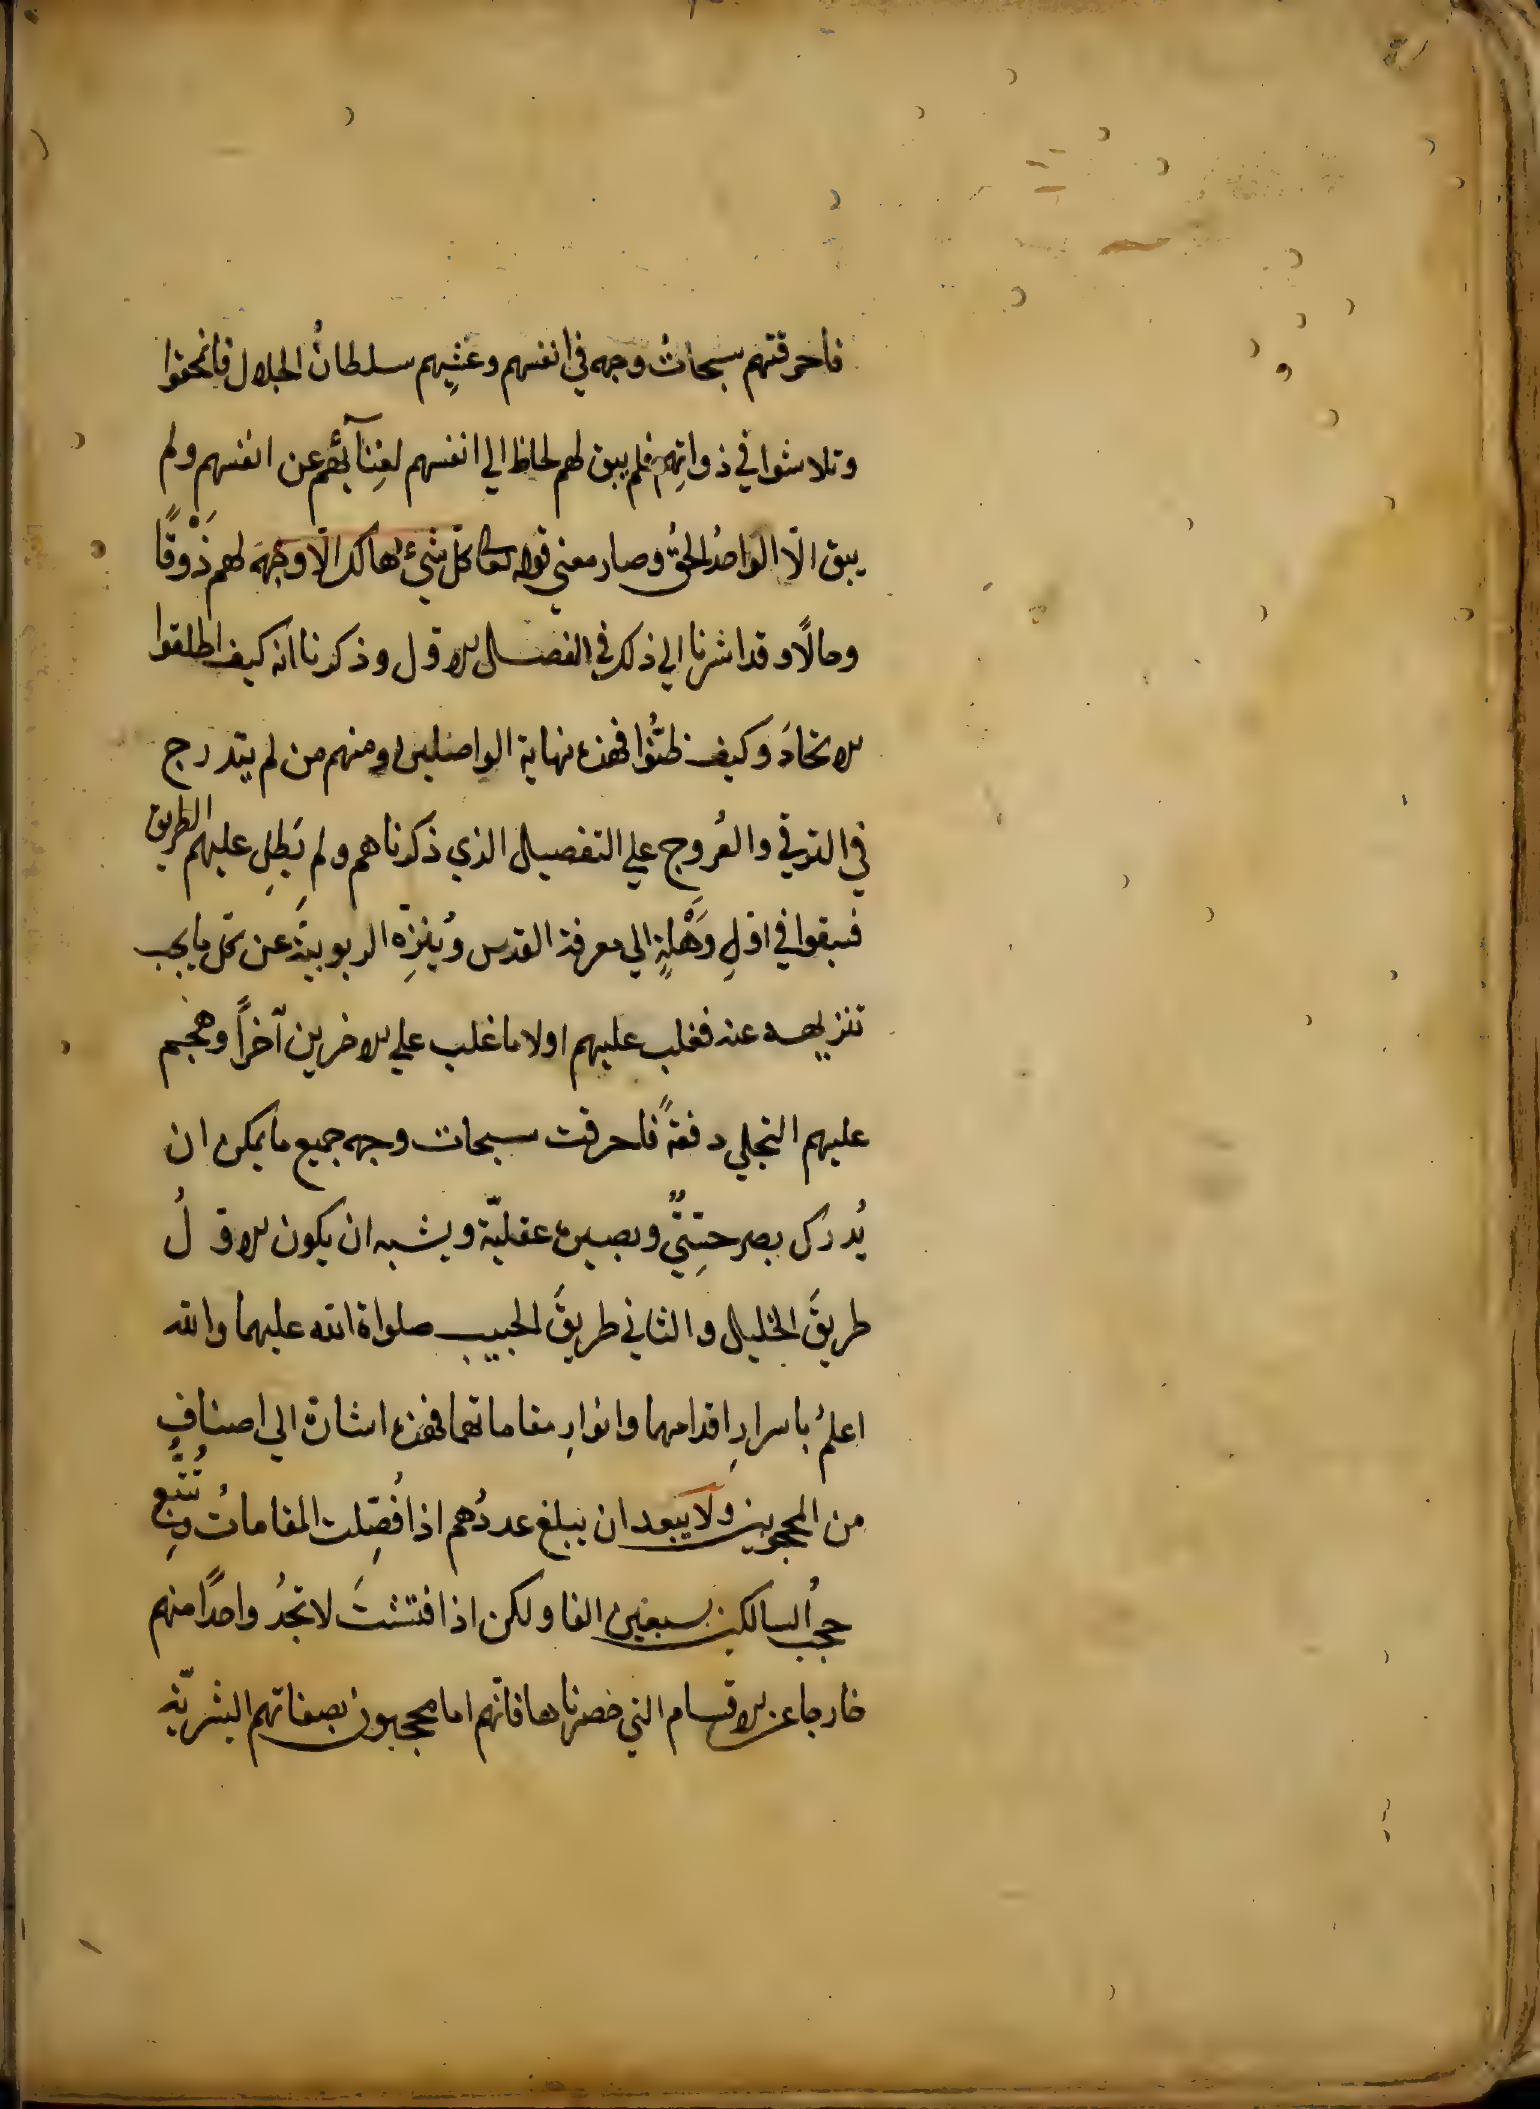 فاحرقتهم سبحاتُ وجهه في انفسهم وغشيهم سلطانُ الجلال فانمحقوا
وتلاشوا في ذواتِهم فلم يبق لهم لحاظ الي انفسهم لفِنآئهم عن انفسهم ولم
يبق الّا الواحدُ الحقُّ وصار معني قوله تعالى كلّ شيءٍ هالك الّا وجهَه لهم ذَوْقًا
وحالًا وقد اشرنا الي ذلك في الفصل الاول وذكرنا انه كيف اطلقوا
الاتحادَ وكيف ظنُّوا فهذه نهاية الواصلين ومنهم من لم يتدرج
في الترقي والعُروجِ علي التفصيل الذي ذكرناهم ولم يَطِل عليهم الطريق
فسبقوا في اوّلِ وَهْلةٍ الي معرفة القدس وتنزِّه الربوبيَّة عن كلّ ما يجب
تنزيهه عنه فغلب عليهم اولا ما غلب علي الاخرين آخراً وهجم
عليهم التجلي دفعةً فاحرقت سبحات وجهه جميع ما يمكن ان
يُدرك بصر حسِّيٌّ وبصيرة عقليّة ويشبه ان يكون الاولُ
طريقَ الخليل والثاني طريقَ الحبيب صلواة الله عليهما والله
اعلمُ باسرارِ اقدامهما وانوارِ مقاماتهما فهذه اشارة الي اصنافٍ
من المحجوبين ولا يبعد ان يبلغ عددُهم اذا فُصِّلت المقاماتُ وتُتُبِّع
حجبُ السالكين سبعين الفا ولكن اذا فتشتَ لا تجدُ واحدًا منهم
خارجا عن الاقسام التي حصرناها فانّهم اما محجبون بصفاتهم البشريّة